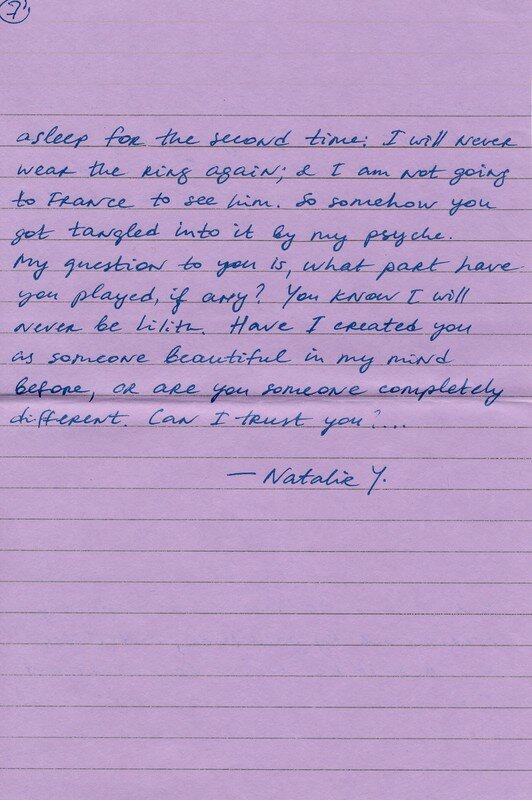 7
asleep for the second time: I will never
wear the ring again; & I am not going
to France to see him. So somehow you
got tangled into it by my psyche.
My question to you is, what part have
you played, if any? You know I will
never be Lilith. Have I created you
as someone beautiful in my mind
before, or are you someone completely
different. Can I trust you?...
— Natalie Y.